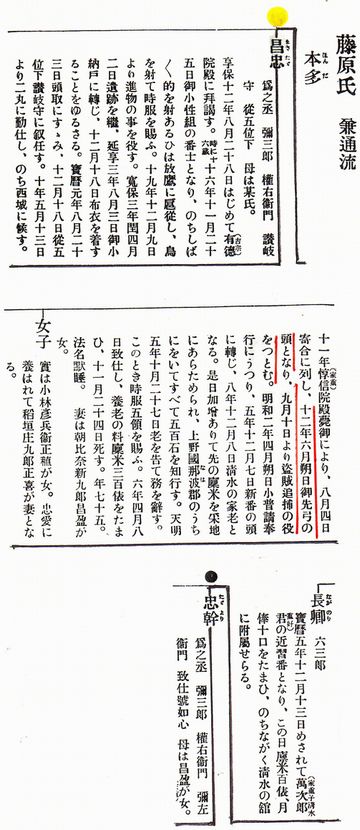 藤原氏 兼通流
本多
ほんだ
昌忠
まさたゞ
爲之丞 彌三郎 權右衞門 讃岐
守 從五位下 母は某氏。
享保十二年八月二十八日はじめて有德
(吉宗)
院殿に拜謁す。時に十六歲 十六年十一月二十
五日御小性組の番士となり、のちしば
〱的を射あるひは放鷹に扈從し、鳥
を射て時服を賜ふ。十九年十二月九日
より進物の事を役す。寬保三年閏四月
二日遺跡を繼、延享三年八月三日御小
納戶に轉じ、十二月十八日布衣を着す
ることをゆるさる。寶曆元年八月二十
三日頭取にすゝみ、十二月十八日從五
位下讃岐守に叙任す。十年五月十三日
より二丸に勤仕し、のち西城に候す。
十一年惇信院殿薨御により、八月四日
(家重)
寄合に列し、十二年六月朔日御先弓の
頭となり、九月十日より盜賊追捕の役
をつとむ。明和二年四月朔日小普請奉
行にうつり、五年十二月七日新番の頭
に轉じ、八年十二月八日淸水の家老と
なる。是日加增ありて先の廩米を采地
にあらためられ、上野國那波郡のうち
なは
にをいてすべて五百石を知行す。天明
五年十月二十七日老を吿て務を辭す。
このとき時服五領を賜ふ。六年四月八
日致仕し、養老の料廩米三百俵をたま
ひ、十一月二十四日死す。年七十五。
法名默睡。 妻は朝比奈新九郎昌盈が
女。
女子
實は小林彥兵衞正稙が女。忠愛に
養はれて稻垣庄九郎正喜が妻とな
る。
長卿
ながのり
六三郎
寶曆五年十二月十三日めされて萬次郎
(家重子淸水重好)
君の近習番となり、この日廩米百俵、月
俸十口をたまひ、のちながく淸水の舘
に附屬せらる。
忠幹
たゞより
爲之丞 彌三郎 權右衞門 彌左
衞門 致仕號如心 母は昌盈が女。